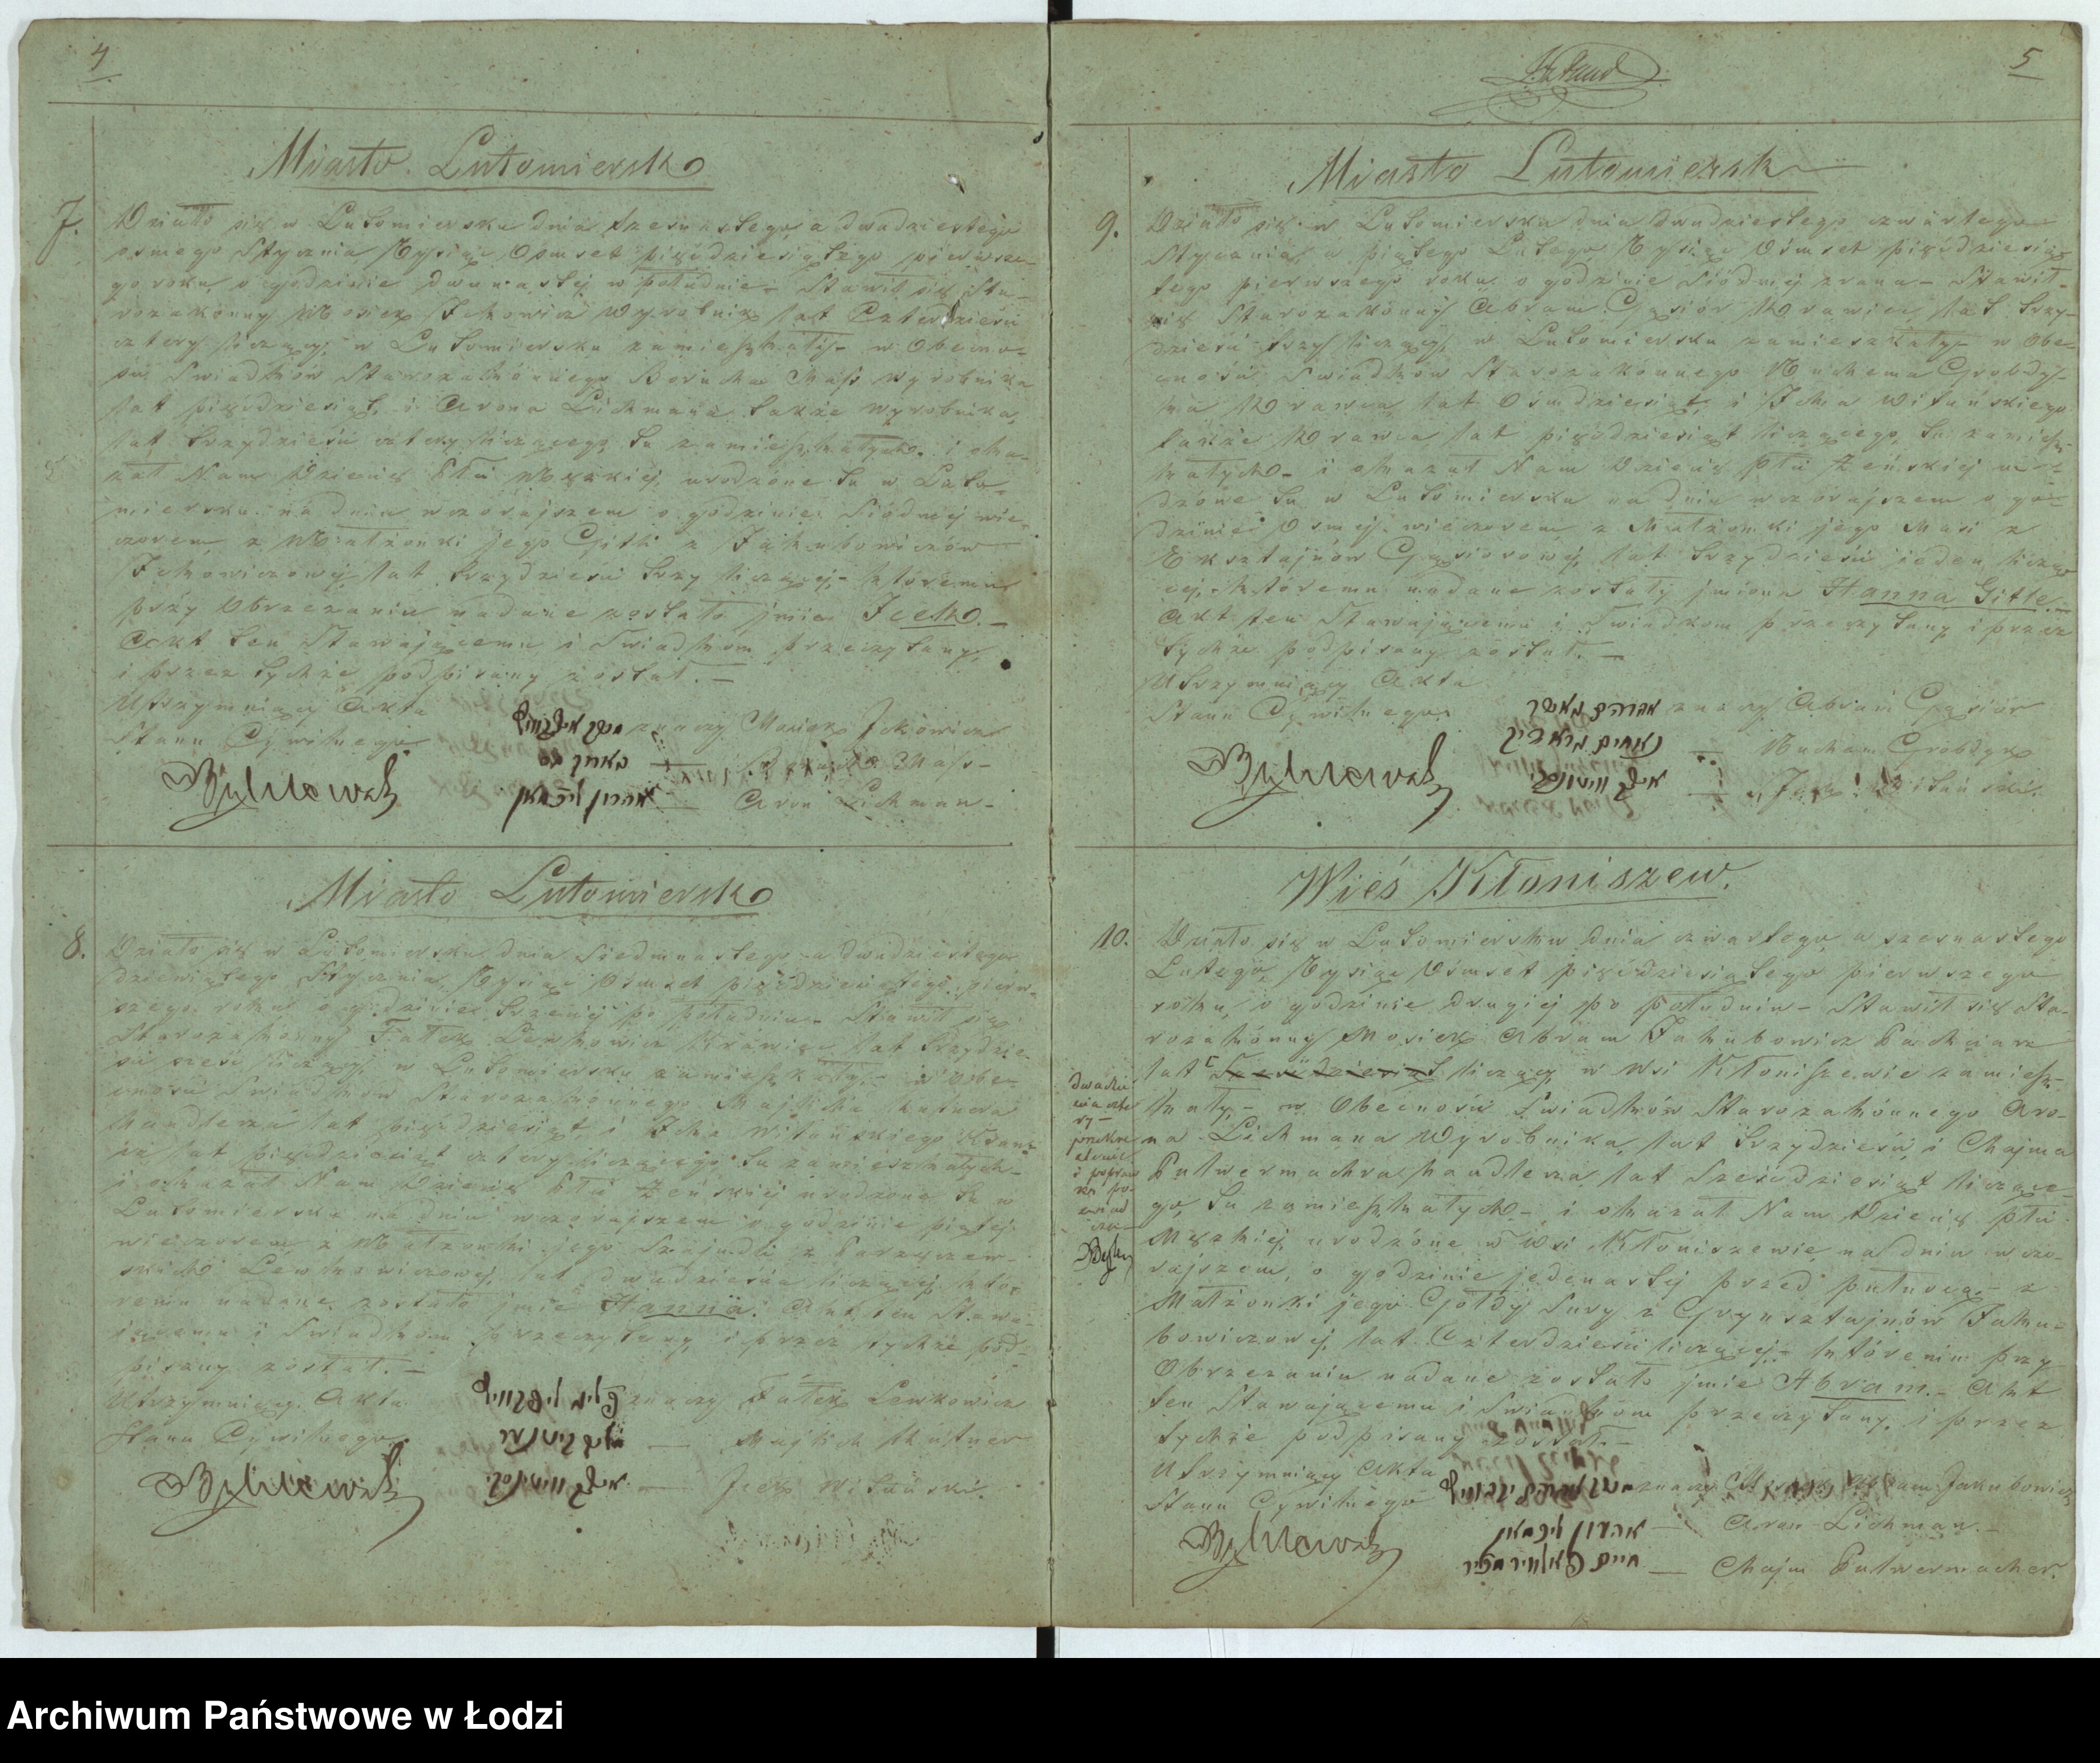 4
Miasto Lutomiersk
7.
Działo się w Lutomiersku dnia szesnastego a dwudziestego
osmego Stycznia Tysiąc Osmset pięćdziesiątego pierwsze-
go roku o godzinie dwunastej w południe – Stawił się Sta-
rozakonny Mosiek Ickowicz Wyrobnik lat Czterdzieści
cztery liczący, w Lutomiersku zamieszkały – w Obecno-
ści Swiadków Starozakonnego Borucha Mass Wyrobnika
lat pięćdziesiąt, i Arona Lichmana także Wyrobnika,
lat trzydzieści cztery liczącego, tu zamieszkałych. i oka-
zał Nam Dziecię Płci Męzkiej, urodzone tu w Luto-
miersku na dniu wczorajszem o godzinie Siódmej wie-
czorem, z Małżonki jego Gitli z Jakubowiczów
Ickowiczowej, lat trzydzieści trzy liczącej – któremu
przy Obrzezaniu nadane zostało jmie Icek. –
Akt ten Stawającemu i Swiadkom przeczytany,
i przez tychże podpisany został. –
Utrzymujący Akta
Stanu Cywilnego
znaczy Mosiek Ickowicz
— Boruch Mass –
אהרון ליכמאן — Aron Lichman –
Miasto Lutomiersk
8.
Działo się w Lutomiersku dnia Siedmnastego a dwudziestego
dziewiątego Stycznia, Tysiąc Osmset pięćdziesiątego pierw-
szego roku o godzinie trzeciej po południu – Stawił się
Starozakonny Fałek Lewkowicz Krawiec lat trzydzie-
ści sześć liczący, w Lutomiersku zamieszkały – w Obe-
cności Swiadków Starozakonnego Majlicha
handlerza lat pięćdziesiąt, i Icka Witońskiego Kraw-
ca lat pięćdziesiąt cztery liczącego tu zamieszkałych –
i okazał Nam Dziecię Płci Żeńskiej urodzone tu w
Lutomiersku na dniu wczorajszem o godzinie piątej
wieczorem, z Małżonki jego
Lewkowiczowej, lat dwadzieścia liczącej, któ-
remu nadane zostało jmie Hanna. Akt ten Stawa-
jącemu i Swiadkom przeczytany, i przez tychże pod-
pisany został. –
Utrzymujący Akta
Stanu Cywilnego
znaczy Fałek Lewkowicz
— Majlich
— Icek Witoński.
5
Miasto Lutomiersk
9.
Działo się w Lutomiersku dnia dwudziestego czwartego
Stycznia, a piątego Lutego, Tysiąc Osmset pięćdziesią-
tego pierwszego roku, o godzinie Siódmej zrana – Stawił
się Starozakonny Abram Gąsiór Krawiec, lat trzy-
dzieści trzy liczący, w Lutomiersku zamieszkały – w Obe-
cności Swiadków Starozakonnego Nuchema Grobdy-
ka Krawca, lat Osmdziesiąt, i Icka Witońskiego
także Krawca lat pięćdziesiąt liczącego, tu zamiesz-
kałych – i okazał Nam Dziecię płci Żeńskiej uro-
dzone tu w Lutomiersku na dniu wczorajszem o go-
dzinie Osmej wieczorem, z Małżonki jego Masi z
Eksztajnów Gąsiorowej, lat trzydzieści jeden liczą-
cej – któremu nadane zostały jmiona Hanna Gitle. –
Akt ten Stawającemu i Swiadkom przeczytany i przez
tychże podpisany został. –
Utrzymujący Akta
Stanu Cywilnego
znaczy Abram Gąsiór
— Nuchem Grobdyk
— Icek Witoński.
Wieś Kłoniszew.
10.
Działo się w Lutomiersku dnia czwartego, a szesnastego
Lutego, Tysiąc Osmset pięćdziesiątego pierwszego
roku, o godzinie drugiej po południu – Stawił się Sta-
rozakonny Mosiek Abram Jakubowicz Pachciarz
lat Sześćdziesiąt liczący, w Wsi Kłoniszewie zamiesz-
kały – w Obecności Swiadków Starozakonnego Aro-
na Lichmana Wyrobnika, lat trzydzieści, i Chajma
Pulwermachra, handlerza lat Sześćdziesiąt liczące-
go, tu zamieszkałych – i okazał Nam Dziecię płci
Męzkiej urodzone w Wsi Kłoniszewie, na dniu wczo-
rajszem, o godzinie jedenastej przed północą – z
Małżonki jego Gołdy Sury z Grynsztajnów Jaku-
bowiczowej, lat Czterdzieści liczącej – któremu przy
Obrzezaniu nadane zostało jmie Abram. – Akt
ten Stawającemu i Swiadkom przeczytany, i przez
tychże podpisany został. –
Utrzymujący Akta
Stanu Cywilnego
znaczy Mosiek Abram Jakubowicz
אהרון ליכמאן — Aron Lichman. –
— Chajm Pulwermacher.
Archiwum Państwowe w Łodzi